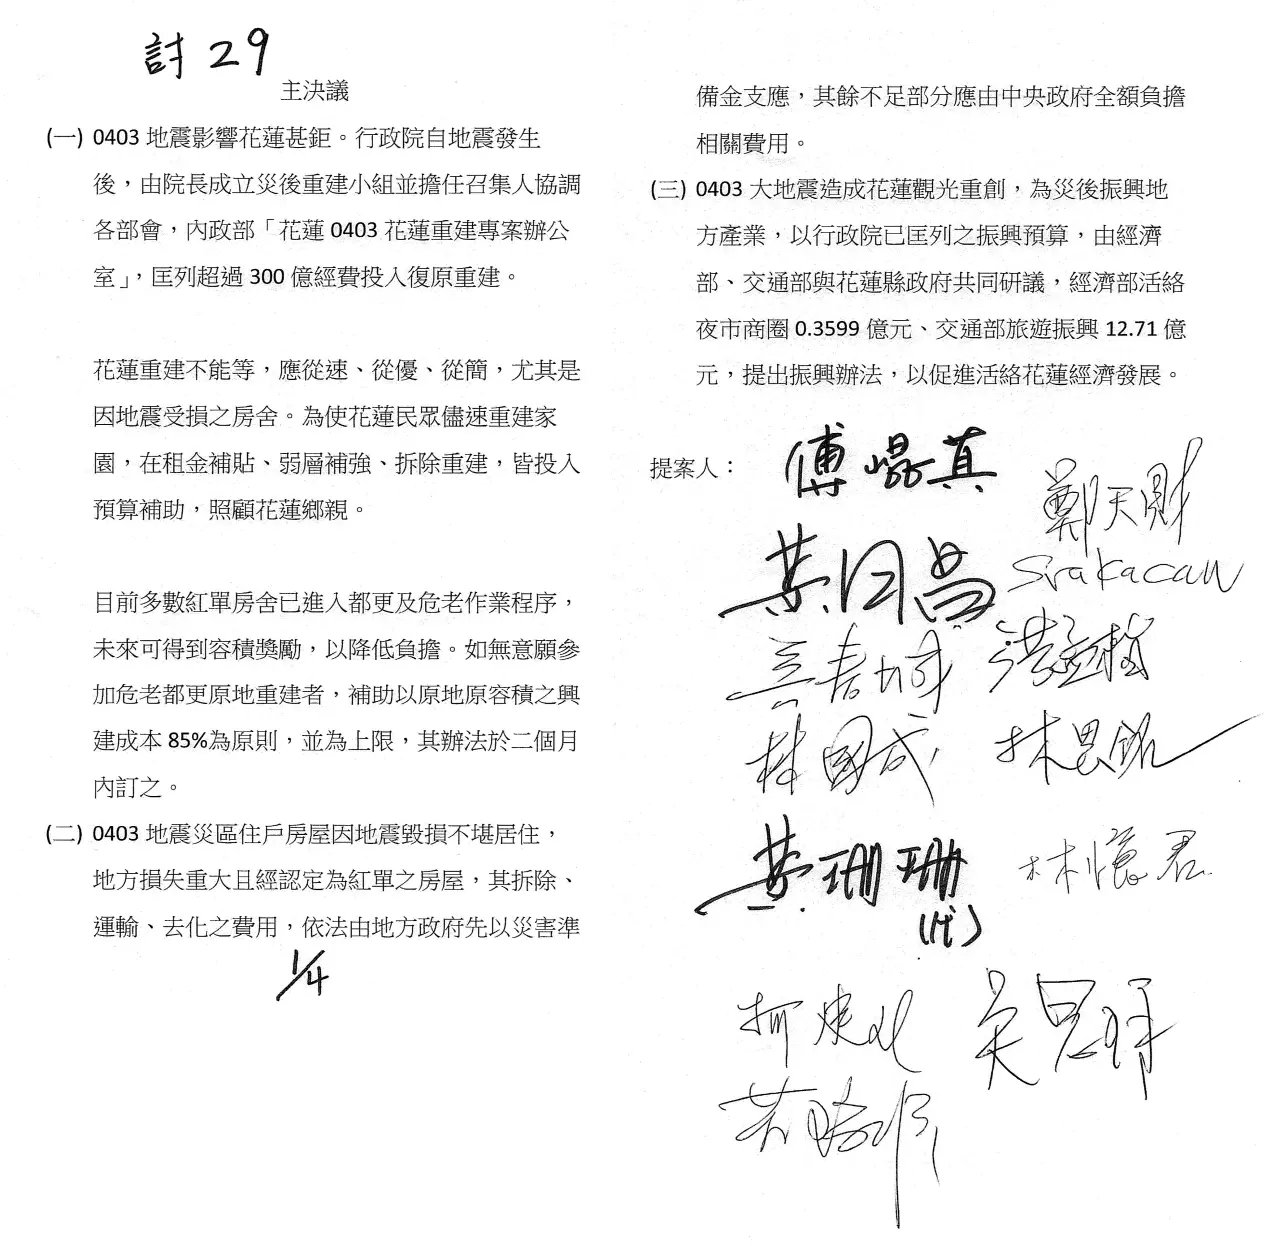 討29
主決議
(一) 0403 地震影響花蓮甚鉅。行政院自地震發生
後，由院長成立災後重建小組並擔任召集人協調
各部會，內政部「花蓮 0403 花蓮重建專案辦公
室」，匡列超過 300 億經費投入復原重建。
花蓮重建不能等，應從速、從優、從簡，尤其是
因地震受損之房舍。為使花蓮民眾儘速重建家
園，在租金補貼、弱層補強、拆除重建，皆投入
預算補助，照顧花蓮鄉親。
目前多數紅單房舍已進入都更及危老作業程序，
未來可得到容積獎勵，以降低負擔。如無意願參
加危老都更原地重建者，補助以原地原容積之興
建成本 85%為原則，並為上限，其辦法於二個月
內訂之。
(二) 0403 地震災區住戶房屋因地震毀損不堪居住，
地方損失重大且經認定為紅單之房屋，其拆除、
運輸、去化之費用，依法由地方政府先以災害準
1/4
備金支應，其餘不足部分應由中央政府全額負擔
相關費用。
(三) 0403 大地震造成花蓮觀光重創，為災後振興地
方產業，以行政院已匡列之振興預算，由經濟
部、交通部與花蓮縣政府共同研議，經濟部活絡
夜市商圈 0.3599 億元、交通部旅遊振興 12.71 億
元，提出振興辦法，以促進活絡花蓮經濟發展。
提案人：
傅崐萁
鄭天財
Sra Kacaw
林國成
林思銘
黃珊珊
(代)
林憶君
柯建銘
吳思瑤